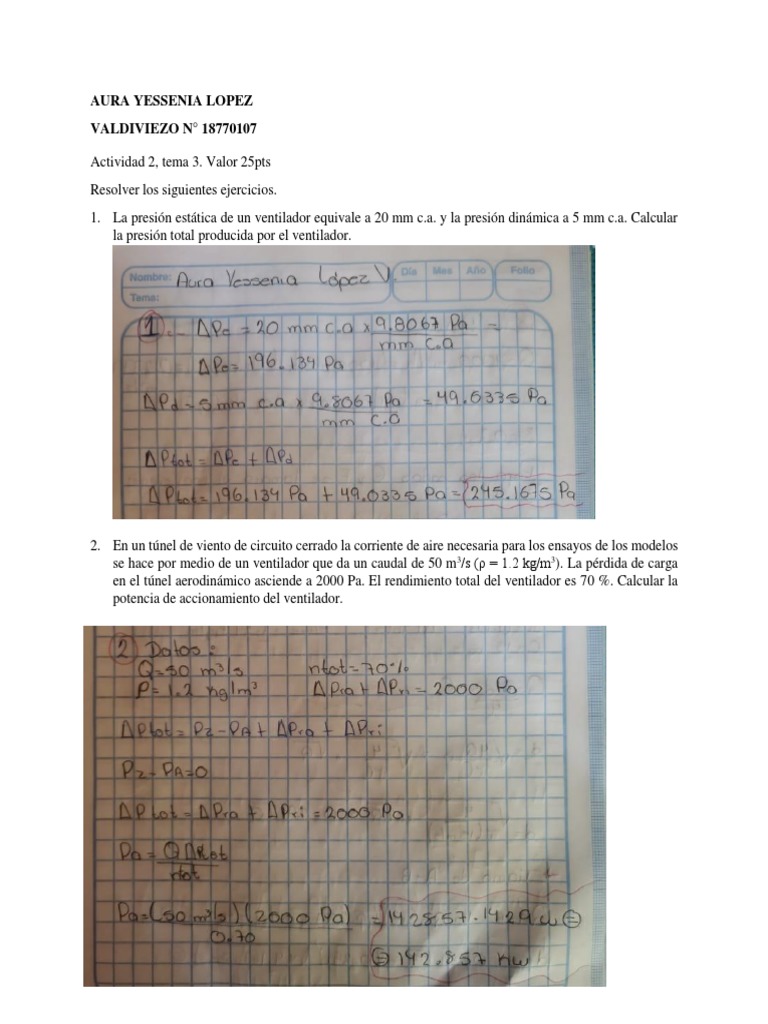 AURA YESSENIA LOPEZ
VALDIVIEZO N° 18770107
Actividad 2, tema 3. Valor 25pts
Resolver los siguientes ejercicios.
1. La presión estática de un ventilador equivale a 20 mm c.a. y la presión dinámica a 5 mm c.a. Calcular
la presión total producida por el ventilador.
Nombre: Aura Yessenia López V. Día Mes Año Folio
Tema:
1.- ΔPe = 20 mm c.a x 9.8067 Pa =
mm c.a
ΔPe= 196.134 Pa
ΔPd = 5 mm c.a x 9.8067 Pa = 49.0335 Pa
mm c.a
ΔPtot = ΔPe + ΔPd
ΔPtot= 196.134 Pa + 49.0335 Pa = 245.1675 Pa
2. En un túnel de viento de circuito cerrado la corriente de aire necesaria para los ensayos de los modelos
se hace por medio de un ventilador que da un caudal de 50 m³/s (ρ = 1.2 kg/m³). La pérdida de carga
en el túnel aerodinámico asciende a 2000 Pa. El rendimiento total del ventilador es 70 %. Calcular la
potencia de accionamiento del ventilador.
2 Datos:
Q=50 m³/s ntot=70%
P=1.2 kg/m³ ΔPra + ΔPri = 2000 Pa
ΔPtot = Pz - PA + ΔPra + ΔPri
Pz - PA=0
ΔPtot = ΔPra + ΔPri = 2000 Pa
Pa = QΔPtot
ntot
Pa=(50 m³/s)(2000 Pa) = 142857.1429 w =
0.70
= 142.857 Kw